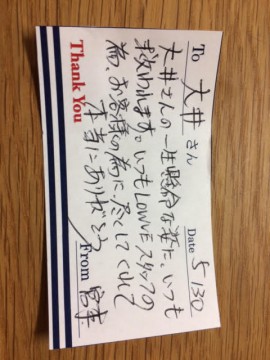 To 大井さん Date 5/30
大井さんの一生懸命な姿に、いつも
救われます。いつもLOWVEスタッフの
為、お客様の為に尽くしてくれて
本当にありがとう
Thank You From